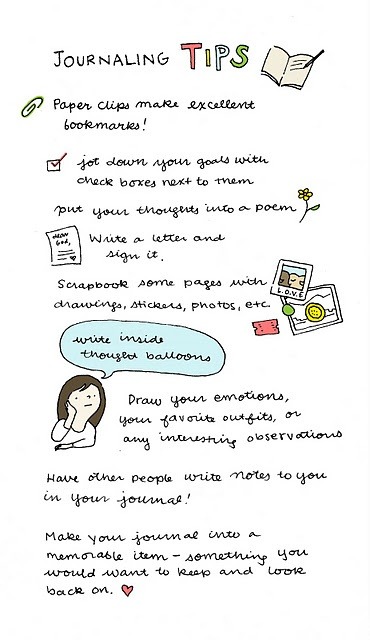 JOURNALING TIPS
Paper clips make excellent
bookmarks!
jot down your goals with
check boxes next to them
put your thoughts into a poem
dear
God,
Write a letter and
sign it.
Scrapbook some pages with
drawings, stickers, photos, etc.
L.O.V.E
write inside
thought balloons
Draw your emotions,
your favorite outfits, or
any interesting observations
Have other people write notes to you
in your journal!
Make your journal into a
memorable item - something you
would want to keep and look
back on.